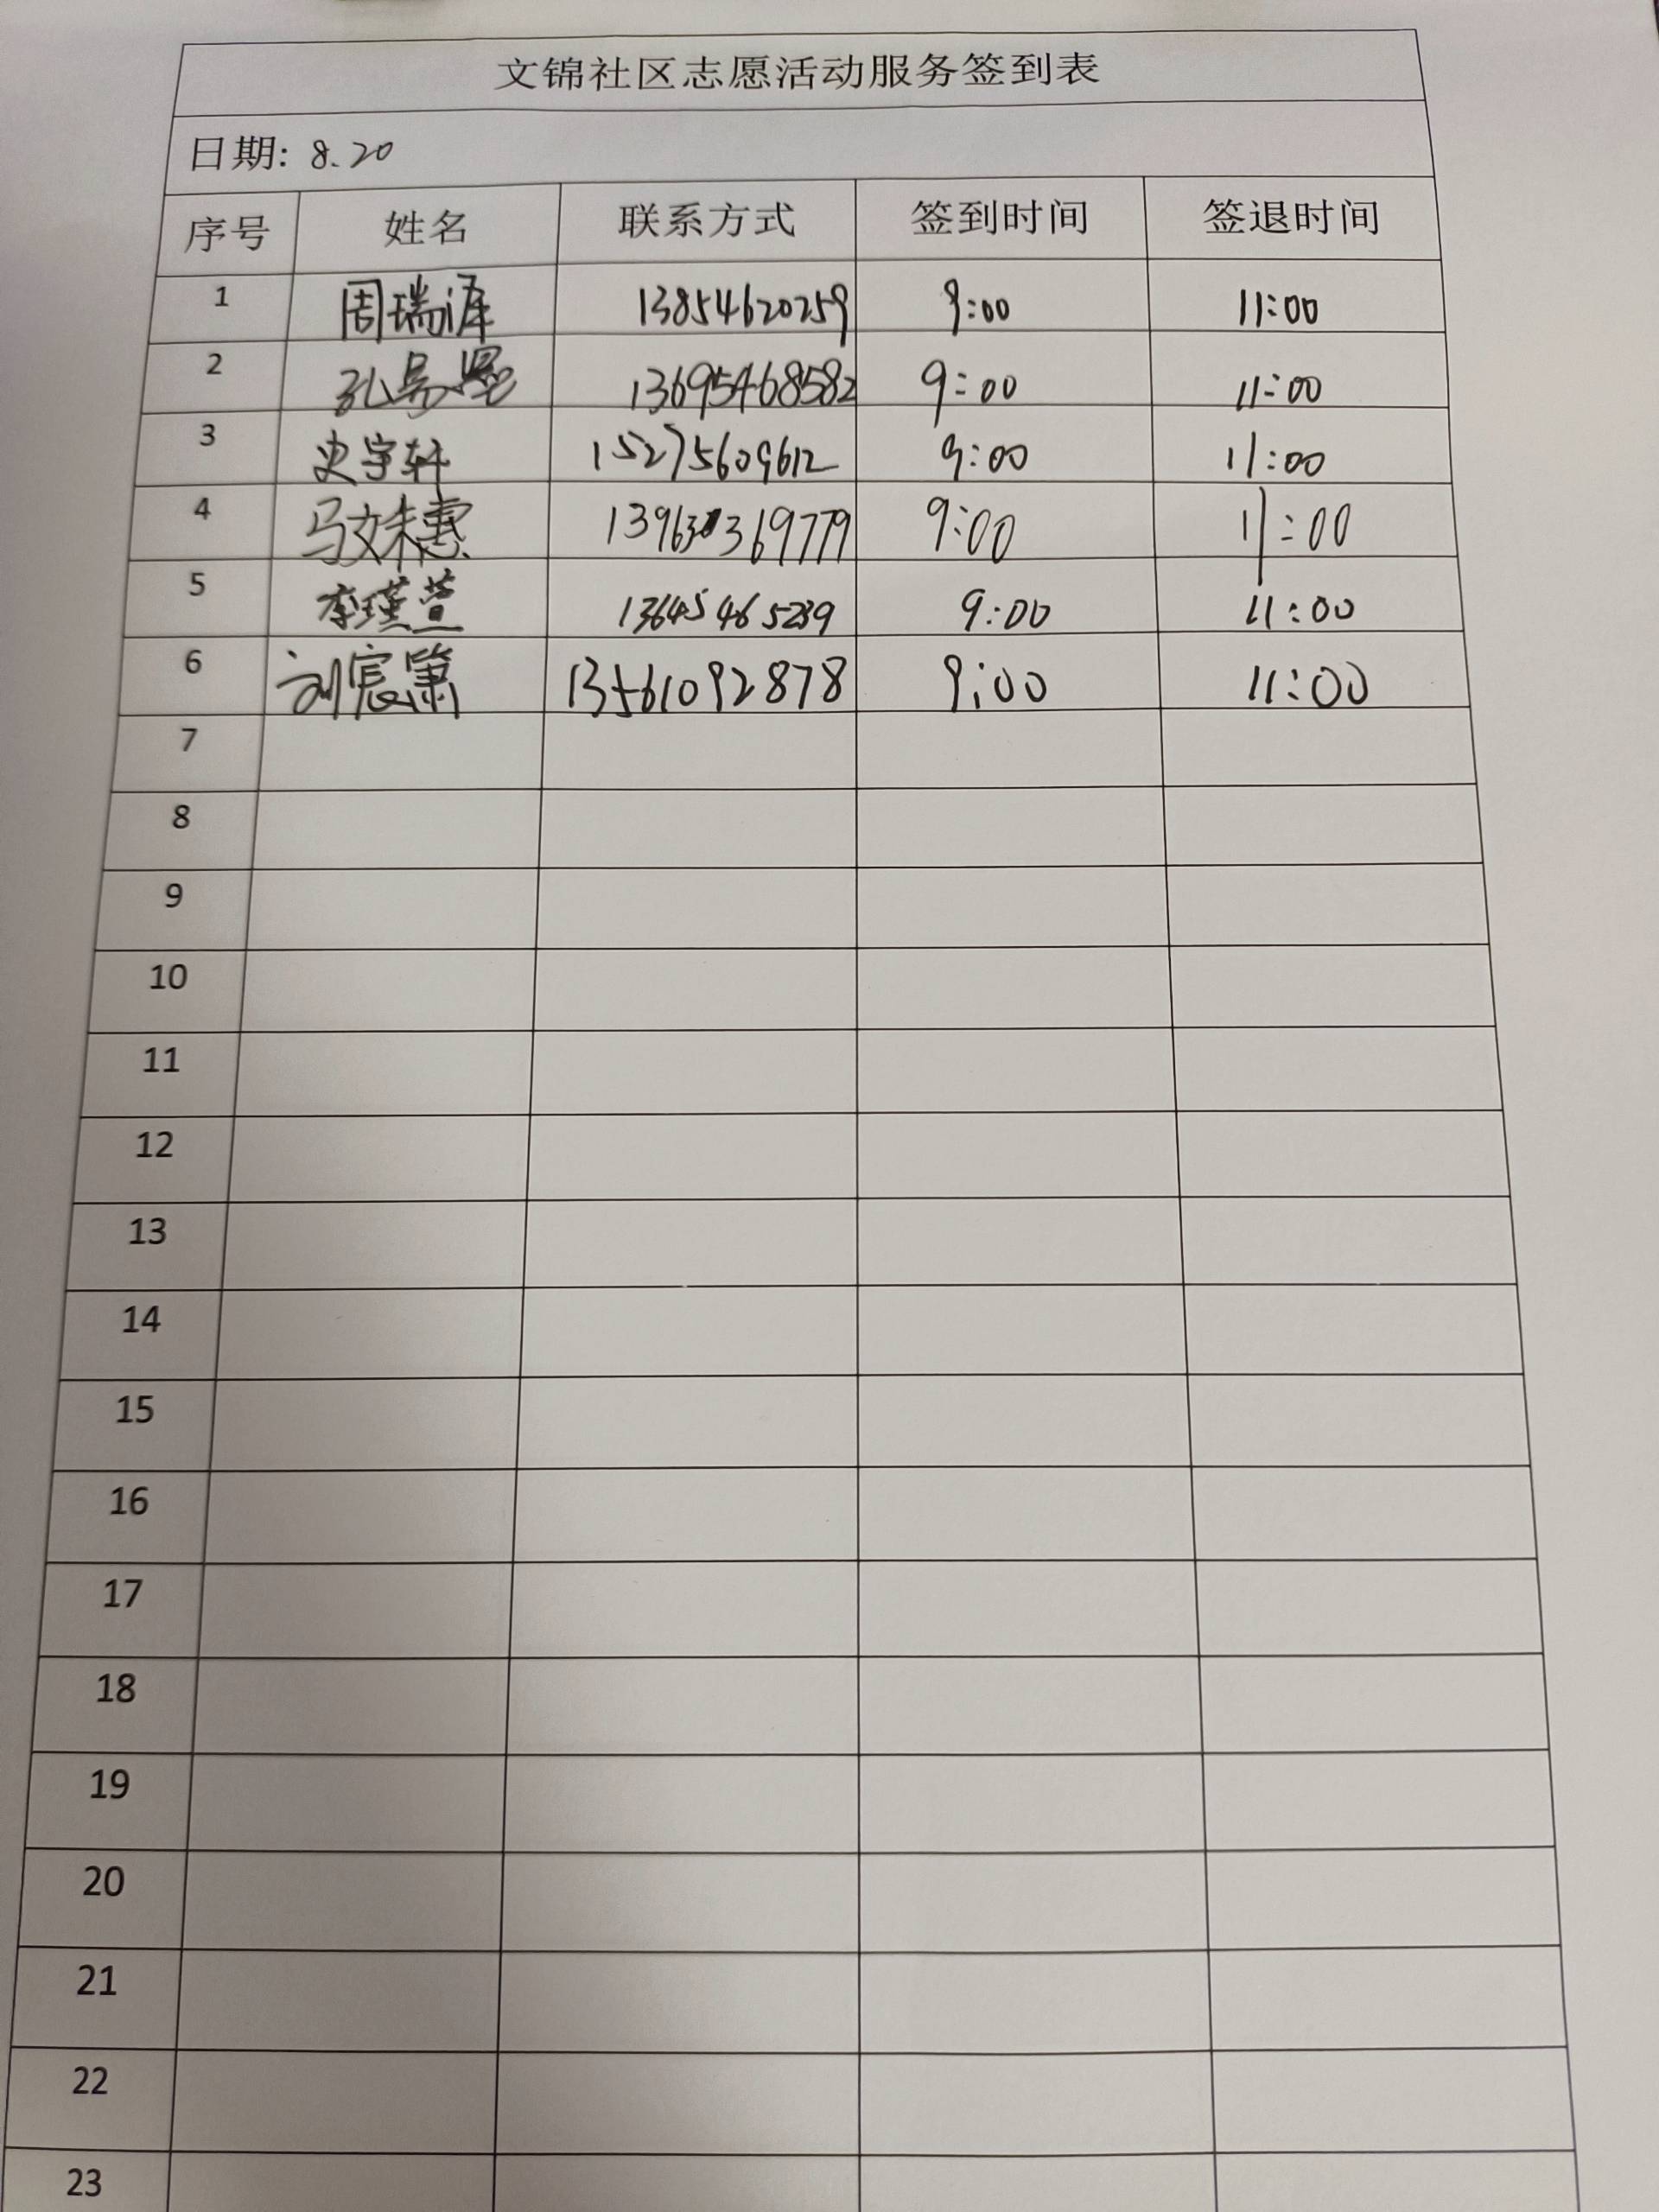 文锦社区志愿活动服务签到表
日期: 8.20
序号 姓名 联系方式 签到时间 签退时间
1 周瑞泽 13854620259 9:00 11:00
2 孔易墨 13695468582 9:00 11:00
3 史宇轩 15275609612 9:00 11:00
4 马文未惠 9:00 11:00
5 李瑾萱 13645465239 9:00 11:00
6 刘宸箫 13561092878 9:00 11:00
7
8
9
10
11
12
13
14
15
16
17
18
19
20
21
22
23